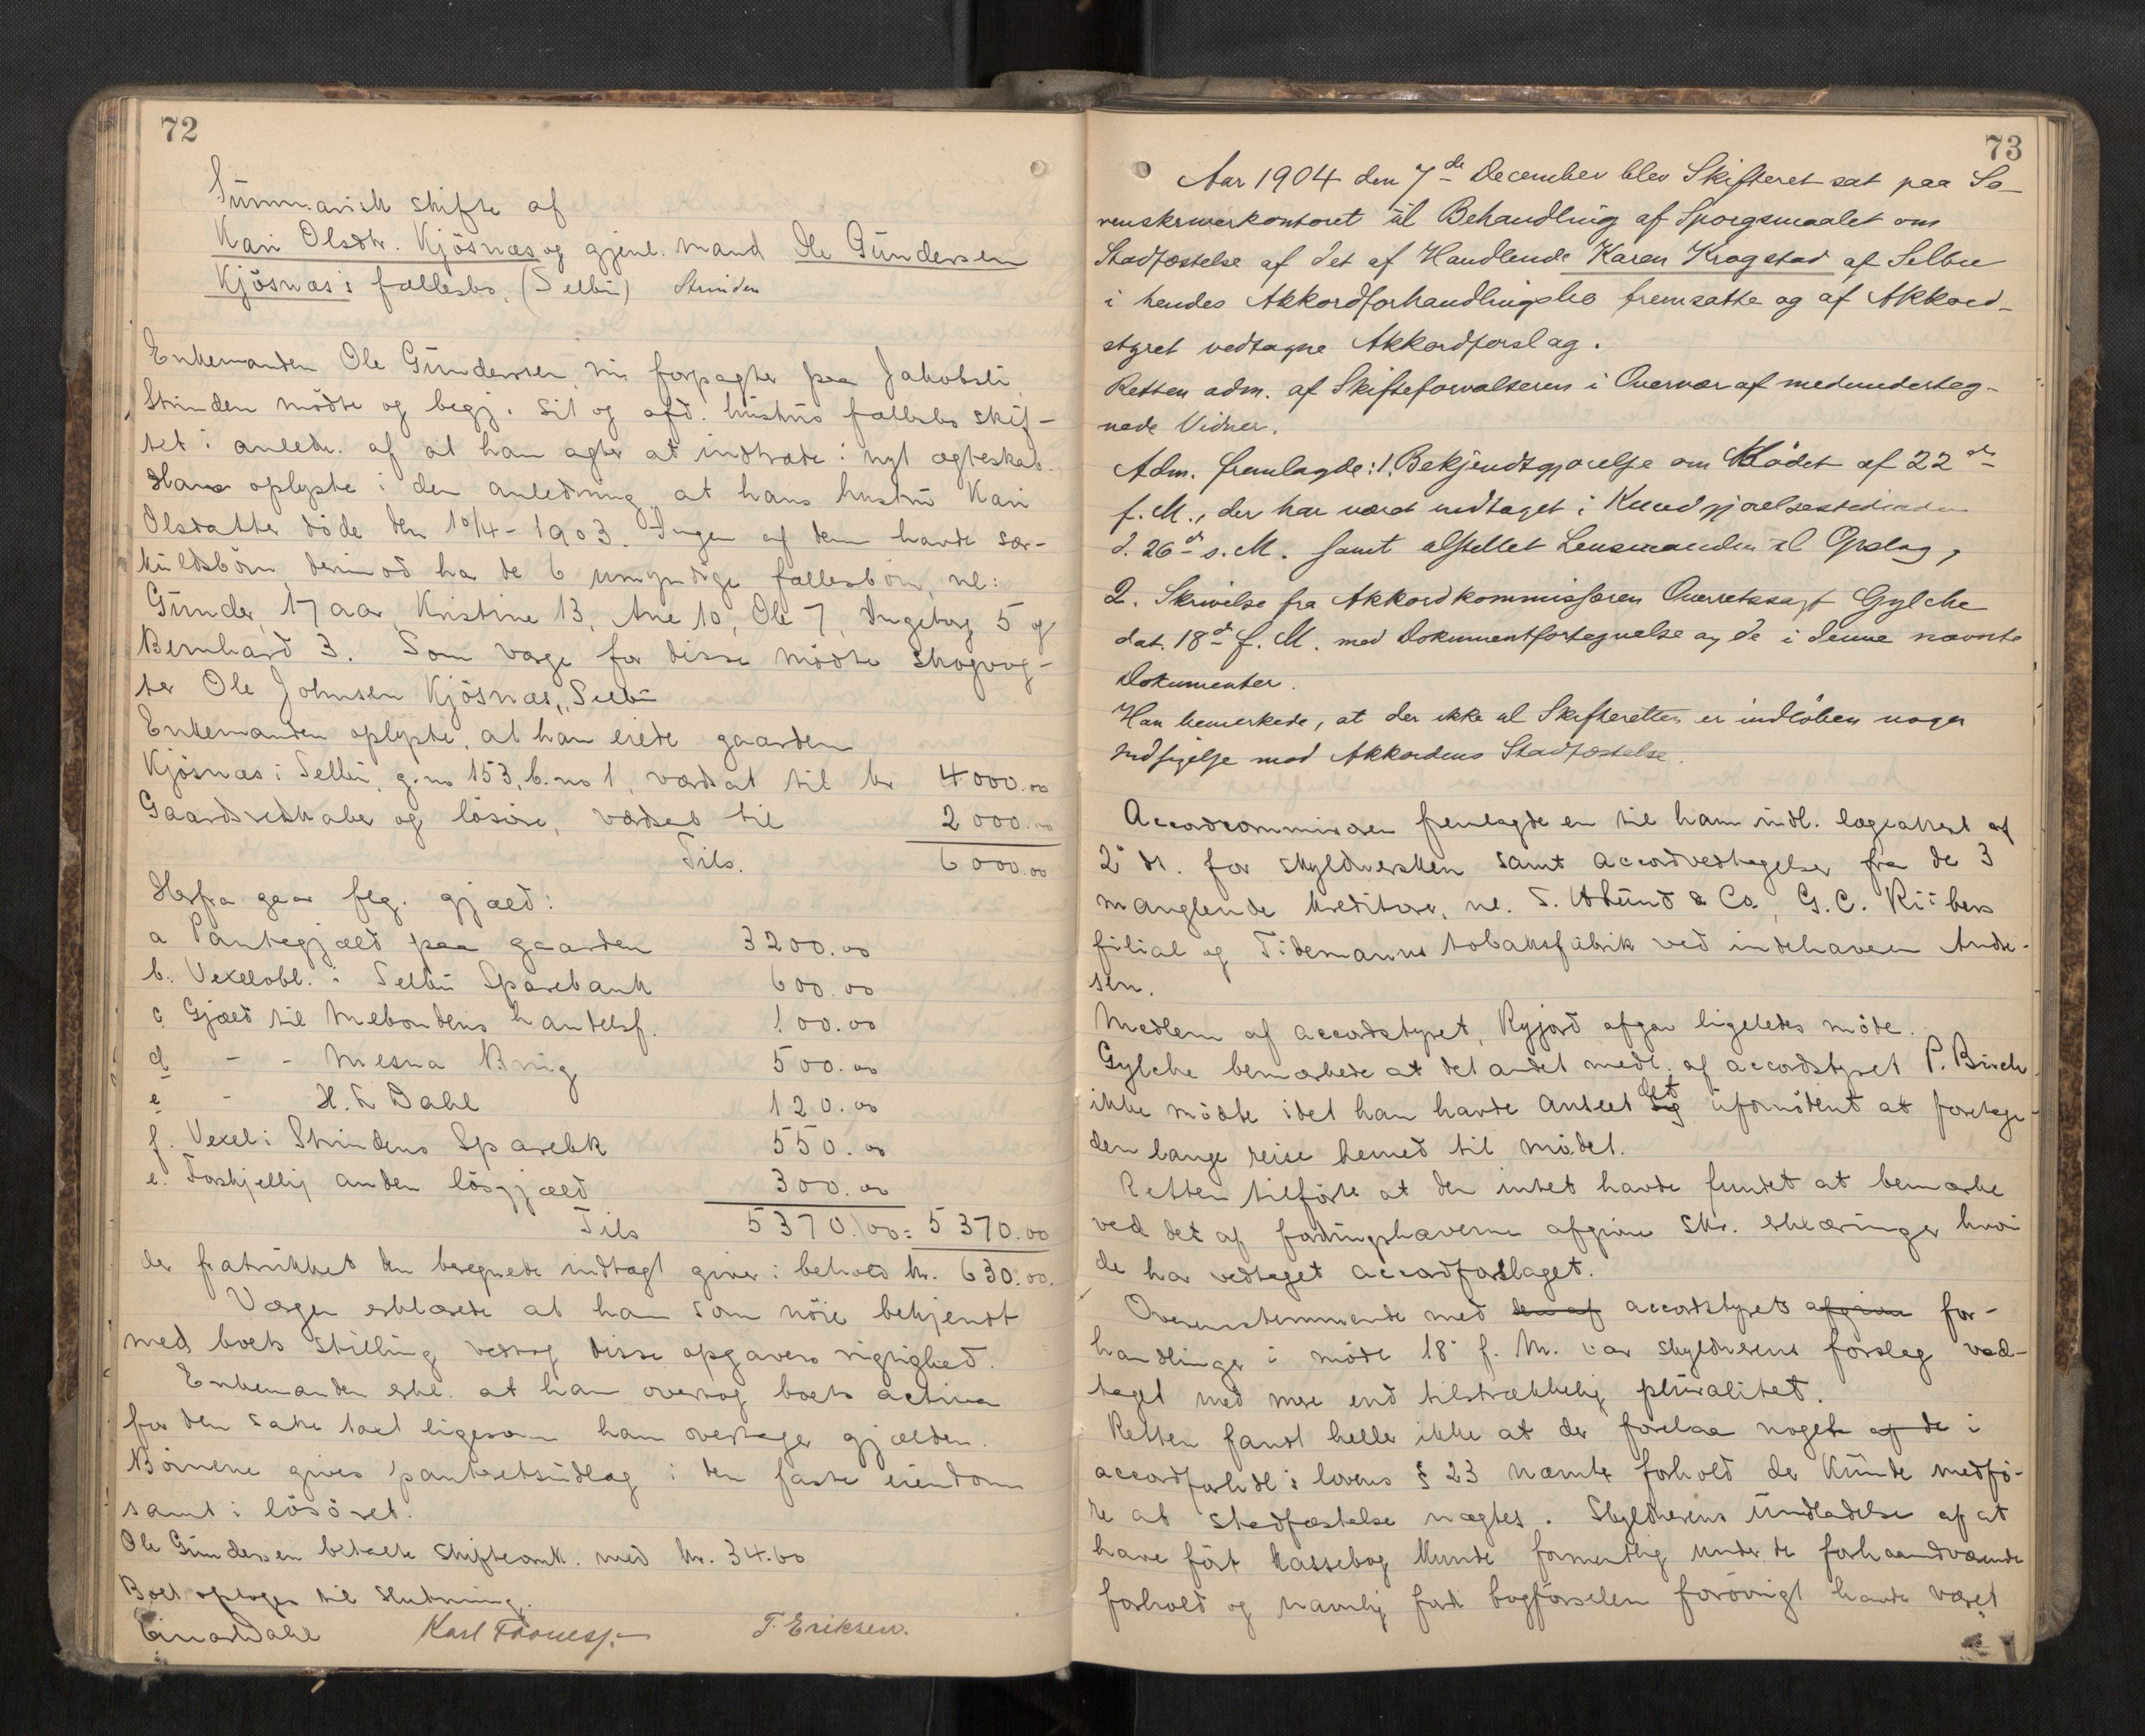 72
Summarisk skifte af
Kari Olsdtr. Kjösnæs og gjenl. mand Ole Gundersen
Kjösnæs i fællesbo, (Selbu) Strinden
Enkemanden Ole Gundersen, nu forpagter paa Jakobsli
Strinden mödte og begj. sit og afd. hustrus fællesbo skif-
tet i anledn. af at han agter at indtræde i nyt ægteskab.
Han oplyste i den anledning at hans hustru Kari
Olsdatter döde den 10/4-1903. Ingen af dem havde sær-
kuldsbörn, derimod har de 6 umyndige fællesbörn, nl:
Gunder, 17 aar, Kristine 13, Ane 10, Ole 7, Ingeborg 5 og
Bernhard 3. Som værge for disse mödte skogvog-
ter Ole Johnsen Kjösnæs, Selbu
Enkemanden oplyste, at han eiede gaarden
Kjösnæs i Selbu, g.no 153, b.no 1, værdsat til kr 4000.00
Gaardsredskaber og lösöre, værdsat til 2000.00
Tils. 6000.00
Herfra gaar flg. gjæld:
a Pantegjæld paa gaarden 3200.00
b. Vexelobl. i Selbu Sparebank 600.00
c Gjæld til Mebondens handelsf. 100.00
d - - Mesna Brug 500.00
e - H. L Dahl 120.00
f. Vexel i Strindens Sparebk 550.00
e. Forskjellig anden lösgjæld 300.00
Tils 5370.00 = 5370.00
der fratrukket den beregnede indtægt giver i behold kr. 630.00.
Værgen erklærede at han som nöie bekjendt
med boets stilling vedtog disse opgavers rigtighed.
Enkemanden erkl. at han overtog boets activa
for den satte taxt ligesom han overtager gjælden.
Börnene gives panteretsudlæg i den faste eiendom
samt i lösöret.
Ole Gundersen betalte skifteomk. med kr. 34.60
Boet optages til slutning.
Einar Dahl Karl T. Eriksen.
73
Aar 1904 den 7de December blev Skifteret sat paa So-
renskriverkontoret til Behandling af Spörgsmaalet om
Stadfæstelse af det af Handlende Karen Krogstad af Selbu
i hendes Akkordforhandlingsbo fremsatte og af Akkord-
styret vedtagne Akkordforslag.
Retten adm. af Skifteforvalteren i Overvær af medunderteg-
nede Vidner.
Adm. fremlagde: 1. Bekjendtgjørelse om Mödet af 22de
f. M., der har været indtaget i Kundgjørelsestidenden
d. 26d s. M. samt tilstillet Lensmanden til Opslag,
2. Skrivelse fra Akkordkommissæren Overretssagf Gylche
dat. 18d f. M. med Dokumentfortegnelse og de i denne nævnte
Dokumenter.
Han bemerkede, at der ikke til Skifteretten er indlöben nogen
Indsigelse mod Akkordens Stadfæstelse.
Accordcommissæren fremlagde en til ham indl. lægeattest af
2' ds. for skyldnersken samt accordvedtagelser fra de 3
manglende kreditorer, nl. S. & Co, G. C. Riibers
filial og Tidemanns tobaksfabrik ved indehaveren Ander-
sen.
Medlem af accordstyret, Rygjord afgav ligeledes möde.
Gylche bemærkede at det andet medl. af accordstyret P. Birch
ikke mödte idet han havde anseet det ufornödent at foretage
den lange reise herned til mödet.
Retten tilförte at den intet havde fundet at bemærke
ved det af fordringshaverne afgivne skr. erklæringer hvori
de har vedtaget accordforslaget.
Overensstemmende med den af accordstyrets afgivne for-
handlinger i möde 18' f. M. var skyldnerens forslag ved-
taget med mere end tilstrækkelig pluralitet.
Retten fandt heller ikke at der forelaa noget af de i
accordforhdl:s lovens § 23 nævnte forhold der kunde medfö-
re at stadfæstelse nægtes. Skyldnerens undladelse af at
have fört kassebog kunde formentlig under de forhaandværende
forhold og navnlig fordi bogförselen forövrigt havde været